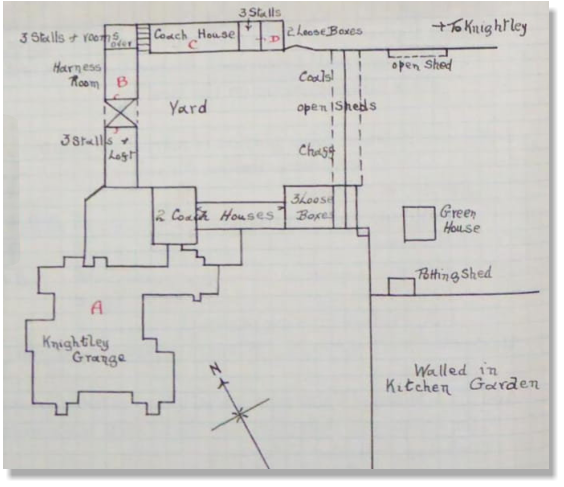 3 Stalls
3 Stalls & rooms
over
Coach House
C
D
2 Loose Boxes
→ To Knightley
open Shed
Harness
Room
B
Yard
Coals
open Sheds
Chaff
3 Stalls &
Loft
2 Coach Houses
3 Loose
Boxes
Green
House
Potting Shed
A
Knightley
Grange
N
Walled in
Kitchen Garden